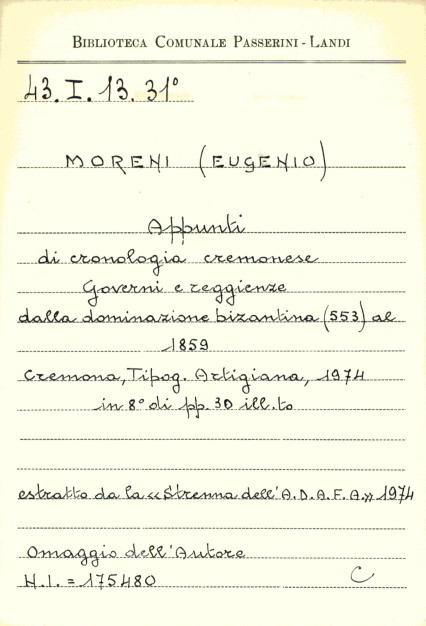 BIBLIOTECA COMUNALE PASSERINI - LANDI
43. I. 13. 31°
MORENI (EUGENIO)
Appunti
di cronologia cremonese
Governi e reggienze
dalla dominazione bizantina (553) al
1859
Cremona, Tipog. Artigiana, 1974
in 8° di pp. 30 ill.to
estratto da la «Strenna dell'A.D.A.F.A.» 1974
Omaggio dell'Autore
N.I. = 175480 C